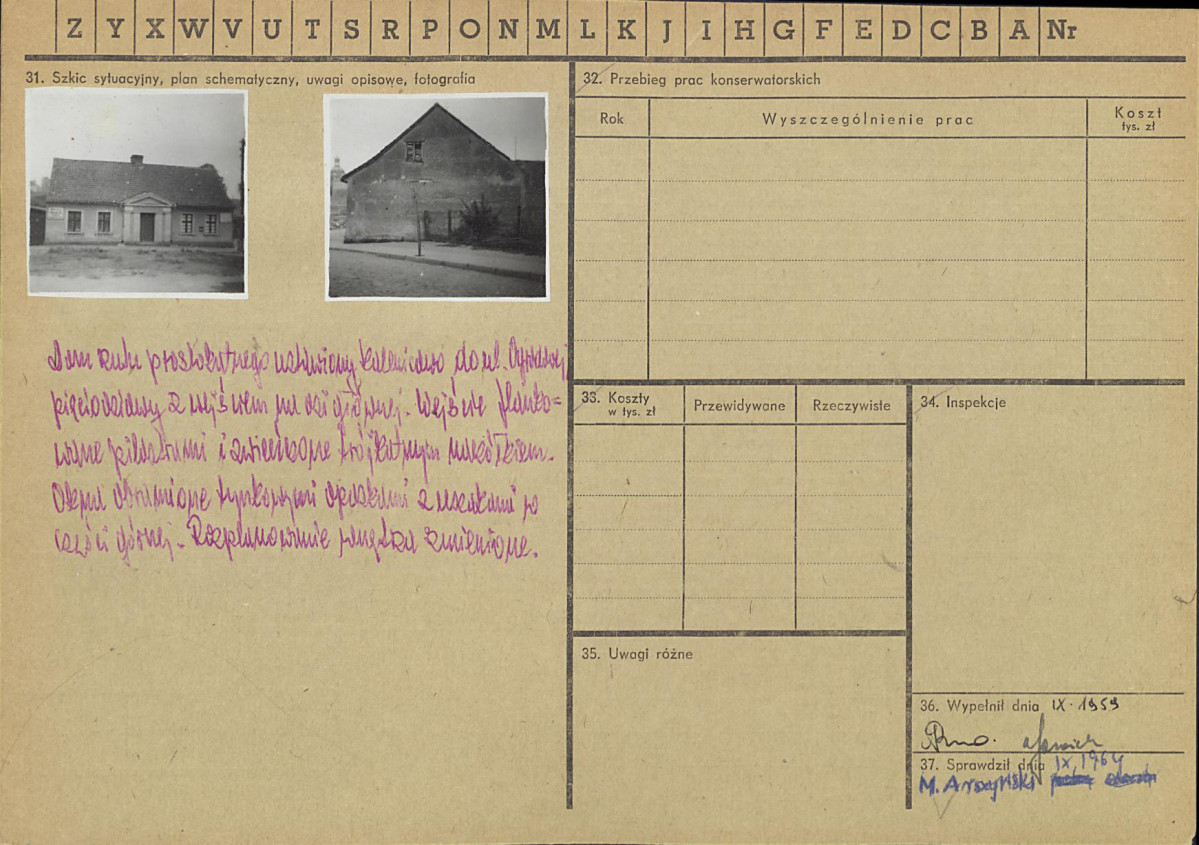 Z Y X W V U T S R P O N M L K J I H G F E D C B A Nr
31. Szkic sytuacyjny, plan schematyczny, uwagi opisowe, fotografia
Dom rzutu prostokątnego ustawiony kalenicowo do ul. Ogrodowej
pięciosiowy z wejściem na osi głównej. Wejście flanko-
wane pilastrami i zwieńczone trójkątnym naczółkiem.
Okna obramione tynkowymi opaskami z uszakami w
części górnej. Rozplanowanie wnętrza zmienione.
32. Przebieg prac konserwatorskich
Rok
Wyszczególnienie prac
Koszt
tys. zł
33. Koszty
w tys. zł
Przewidywane
Rzeczywiste
34. Inspekcje
35. Uwagi różne
36. Wypełnił dnia IX. 1959
37. Sprawdził dnia IX, 1964
M. Arszyński